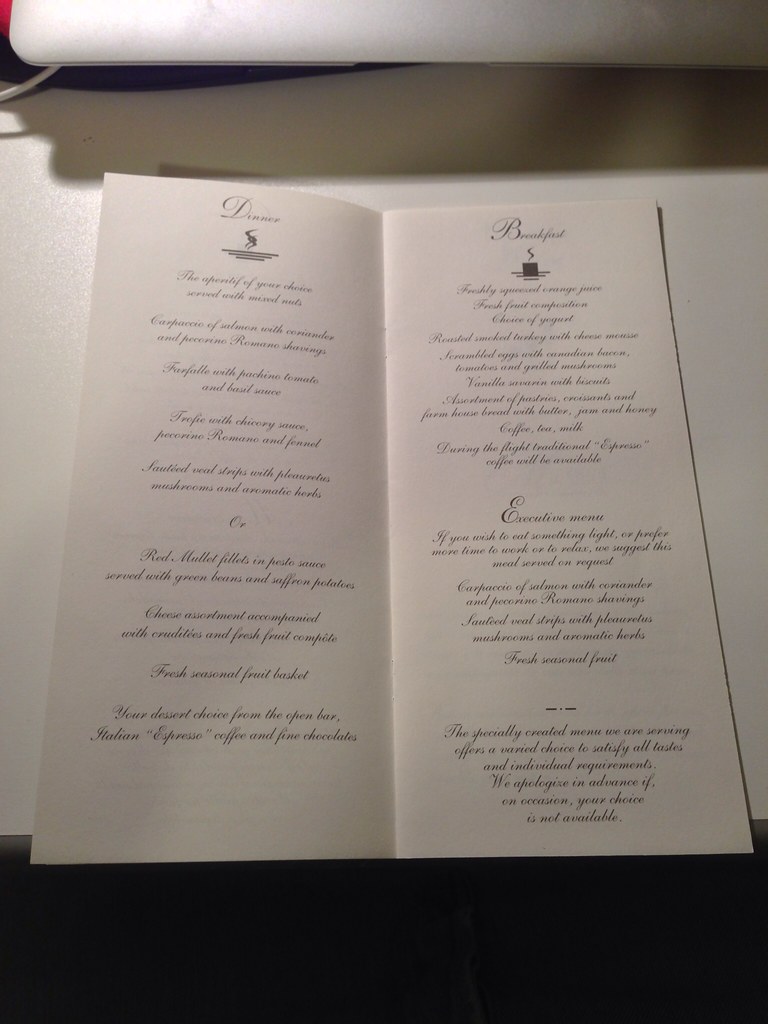 Dinner
The aperitif of your choice
served with mixed nuts
Carpaccio of salmon with coriander
and pecorino Romano shavings
Farfalle with pachino tomato
and basil sauce
Trofie with chicory sauce,
pecorino Romano and fennel
Sautéed veal strips with pleauretus
mushrooms and aromatic herbs
Or
Red Mullet fillets in pesto sauce
served with green beans and saffron potatoes
Cheese assortment accompanied
with cruditées and fresh fruit compôte
Fresh seasonal fruit basket
Your dessert choice from the open bar,
Italian "Espresso" coffee and fine chocolates
Breakfast
Freshly squeezed orange juice
Fresh fruit composition
Choice of yogurt
Roasted smoked turkey with cheese mousse
Scrambled eggs with canadian bacon,
tomatoes and grilled mushrooms
Vanilla savarin with biscuits
Assortment of pastries, croissants and
farm house bread with butter, jam and honey
Coffee, tea, milk
During the flight traditional "Espresso"
coffee will be available
Executive menu
If you wish to eat something light, or prefer
more time to work or to relax, we suggest this
meal served on request
Carpaccio of salmon with coriander
and pecorino Romano shavings
Sautéed veal strips with pleauretus
mushrooms and aromatic herbs
Fresh seasonal fruit
The specially created menu we are serving
offers a varied choice to satisfy all tastes
and individual requirements.
We apologize in advance if,
on occasion, your choice
is not available.